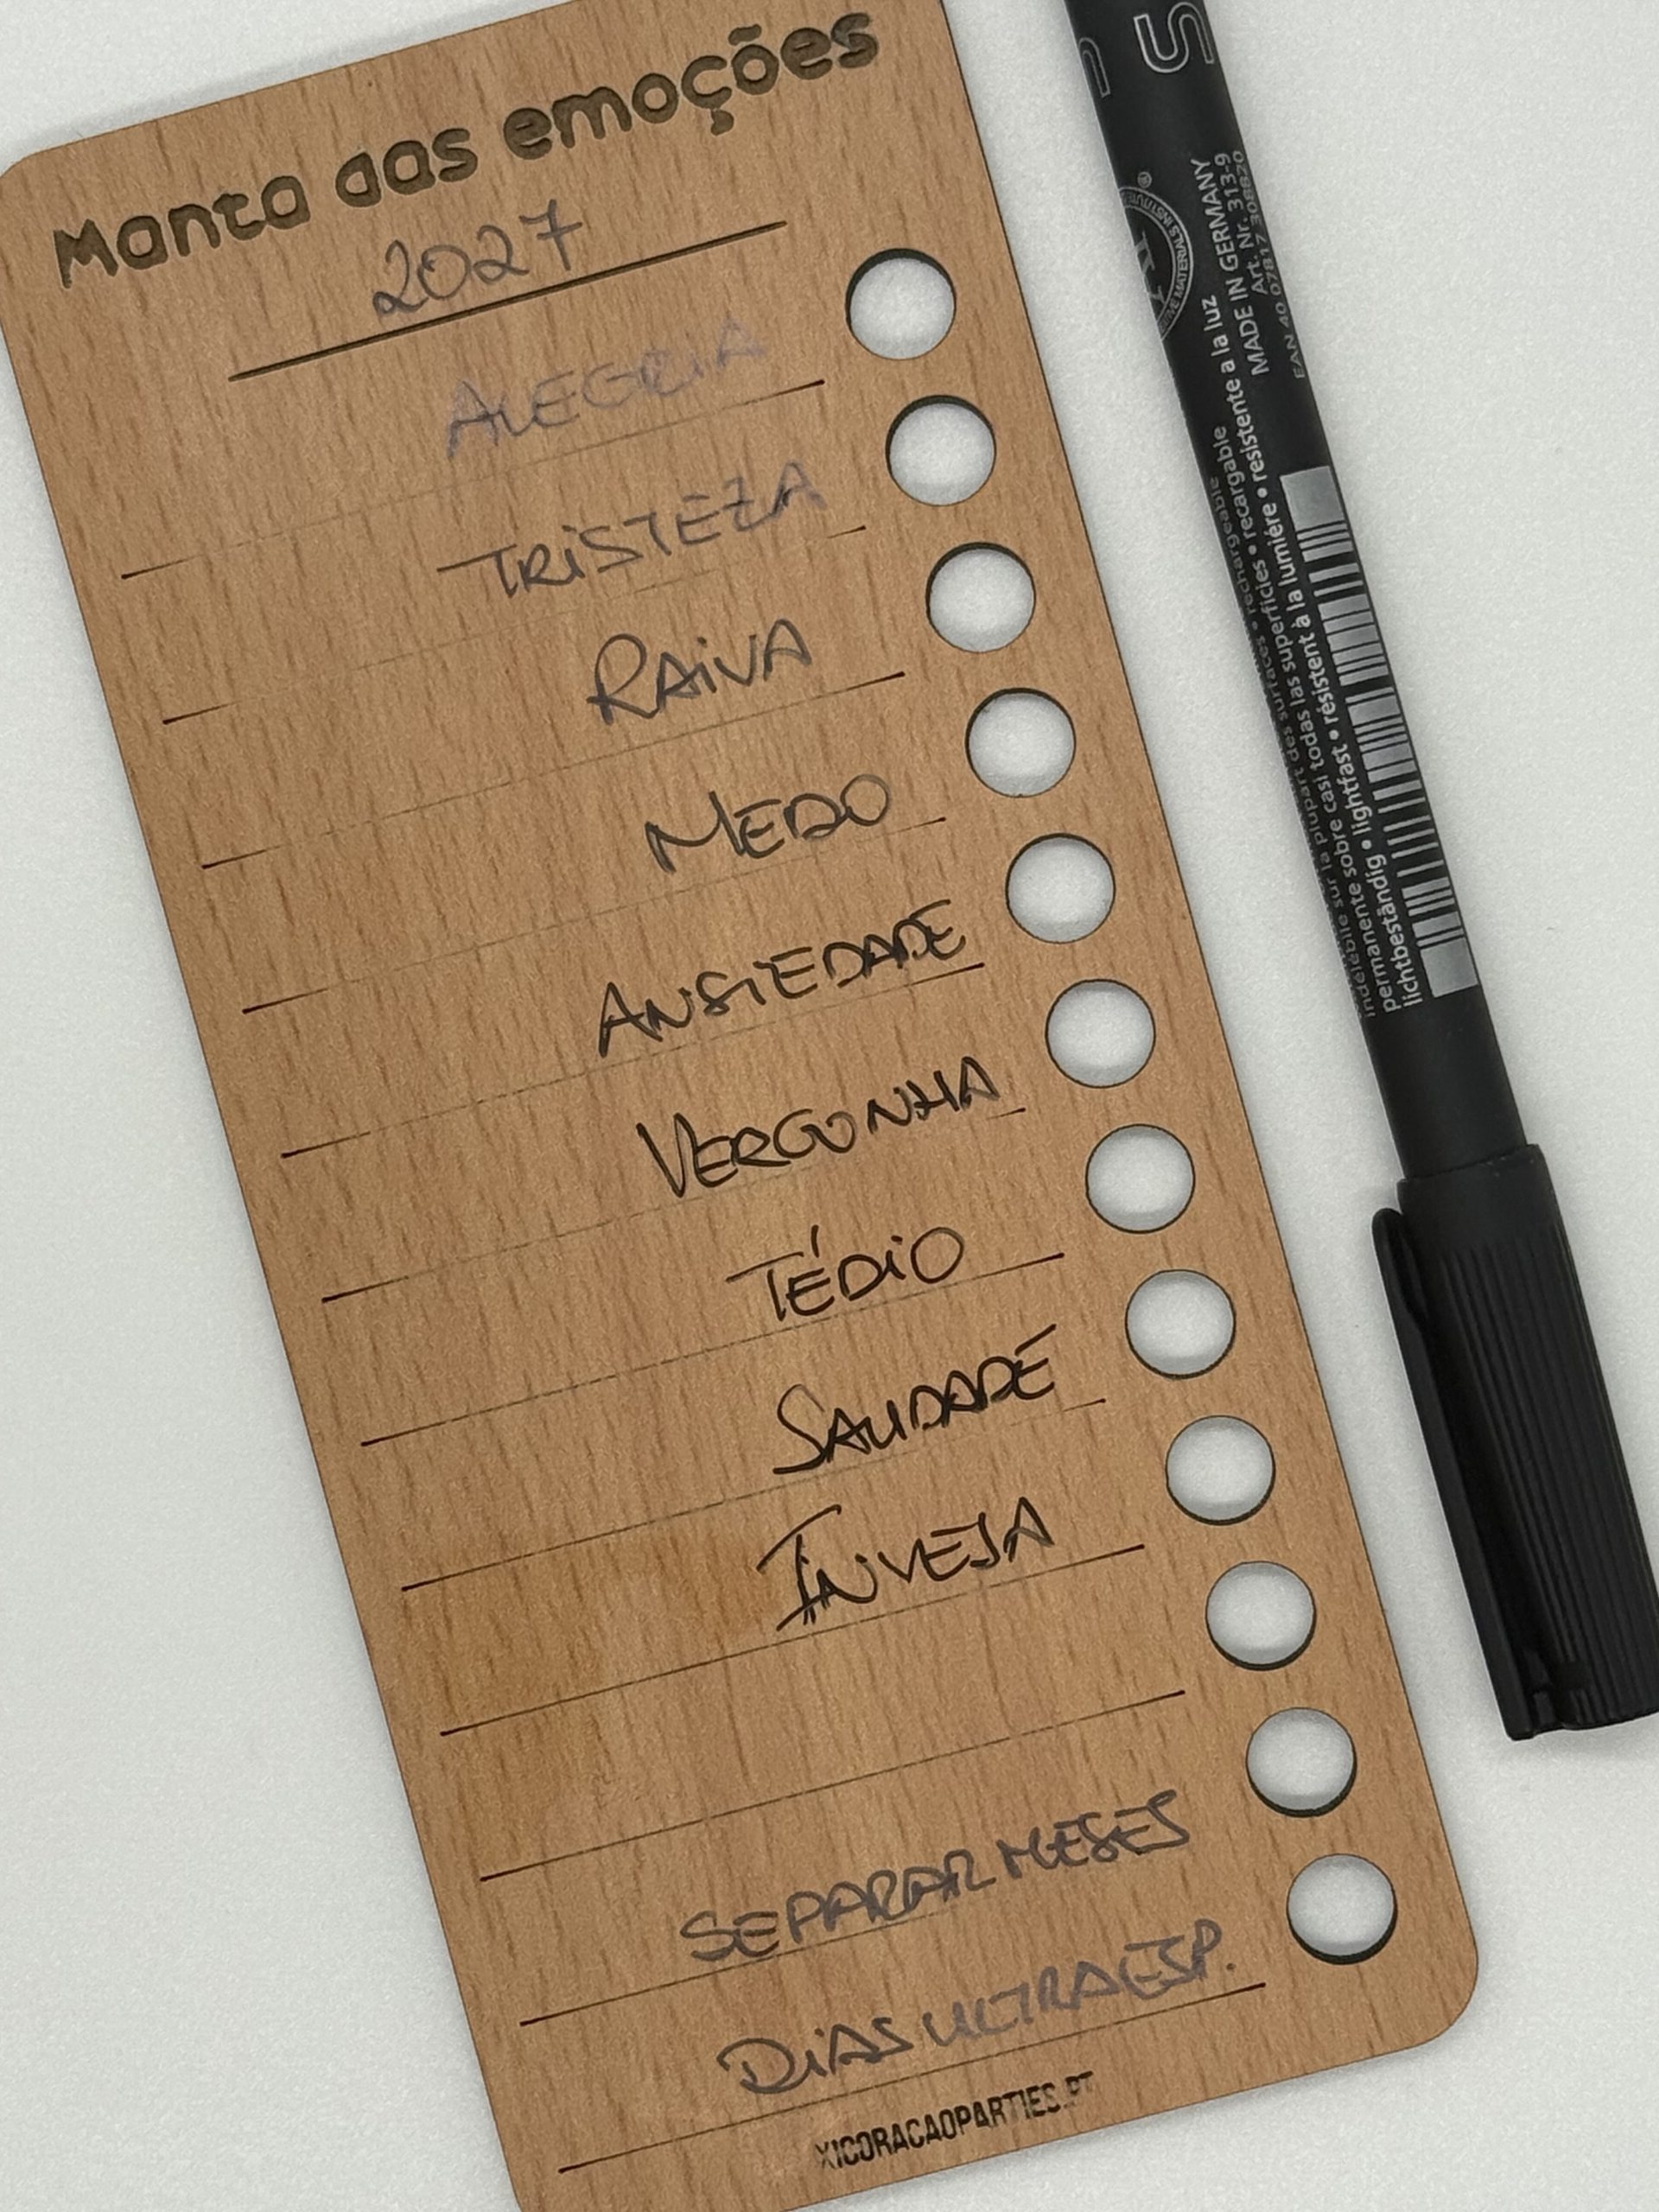 Manta das emoções
2027
ALEGRIA
TRiSTEZA
RAiVA
MEDO
ANSIEDADE
VERGONHA
TÉDiO
SAUDADE
INVEJA
SEPARAR MESES
DiAS ULTRA ESP.
XICORACAOPARTIES.PT
S
MADE IN GERMANY
Art. Nr. 313-9
EAN 40 07817 308820
rechargeable
surfaces • rechargeable • recargable
indélébile sur la plupart des surfaces
permanente sobre casi todas las superficies • resistente a la luz
lichtbeständig • lightfast • résistent à la lumière